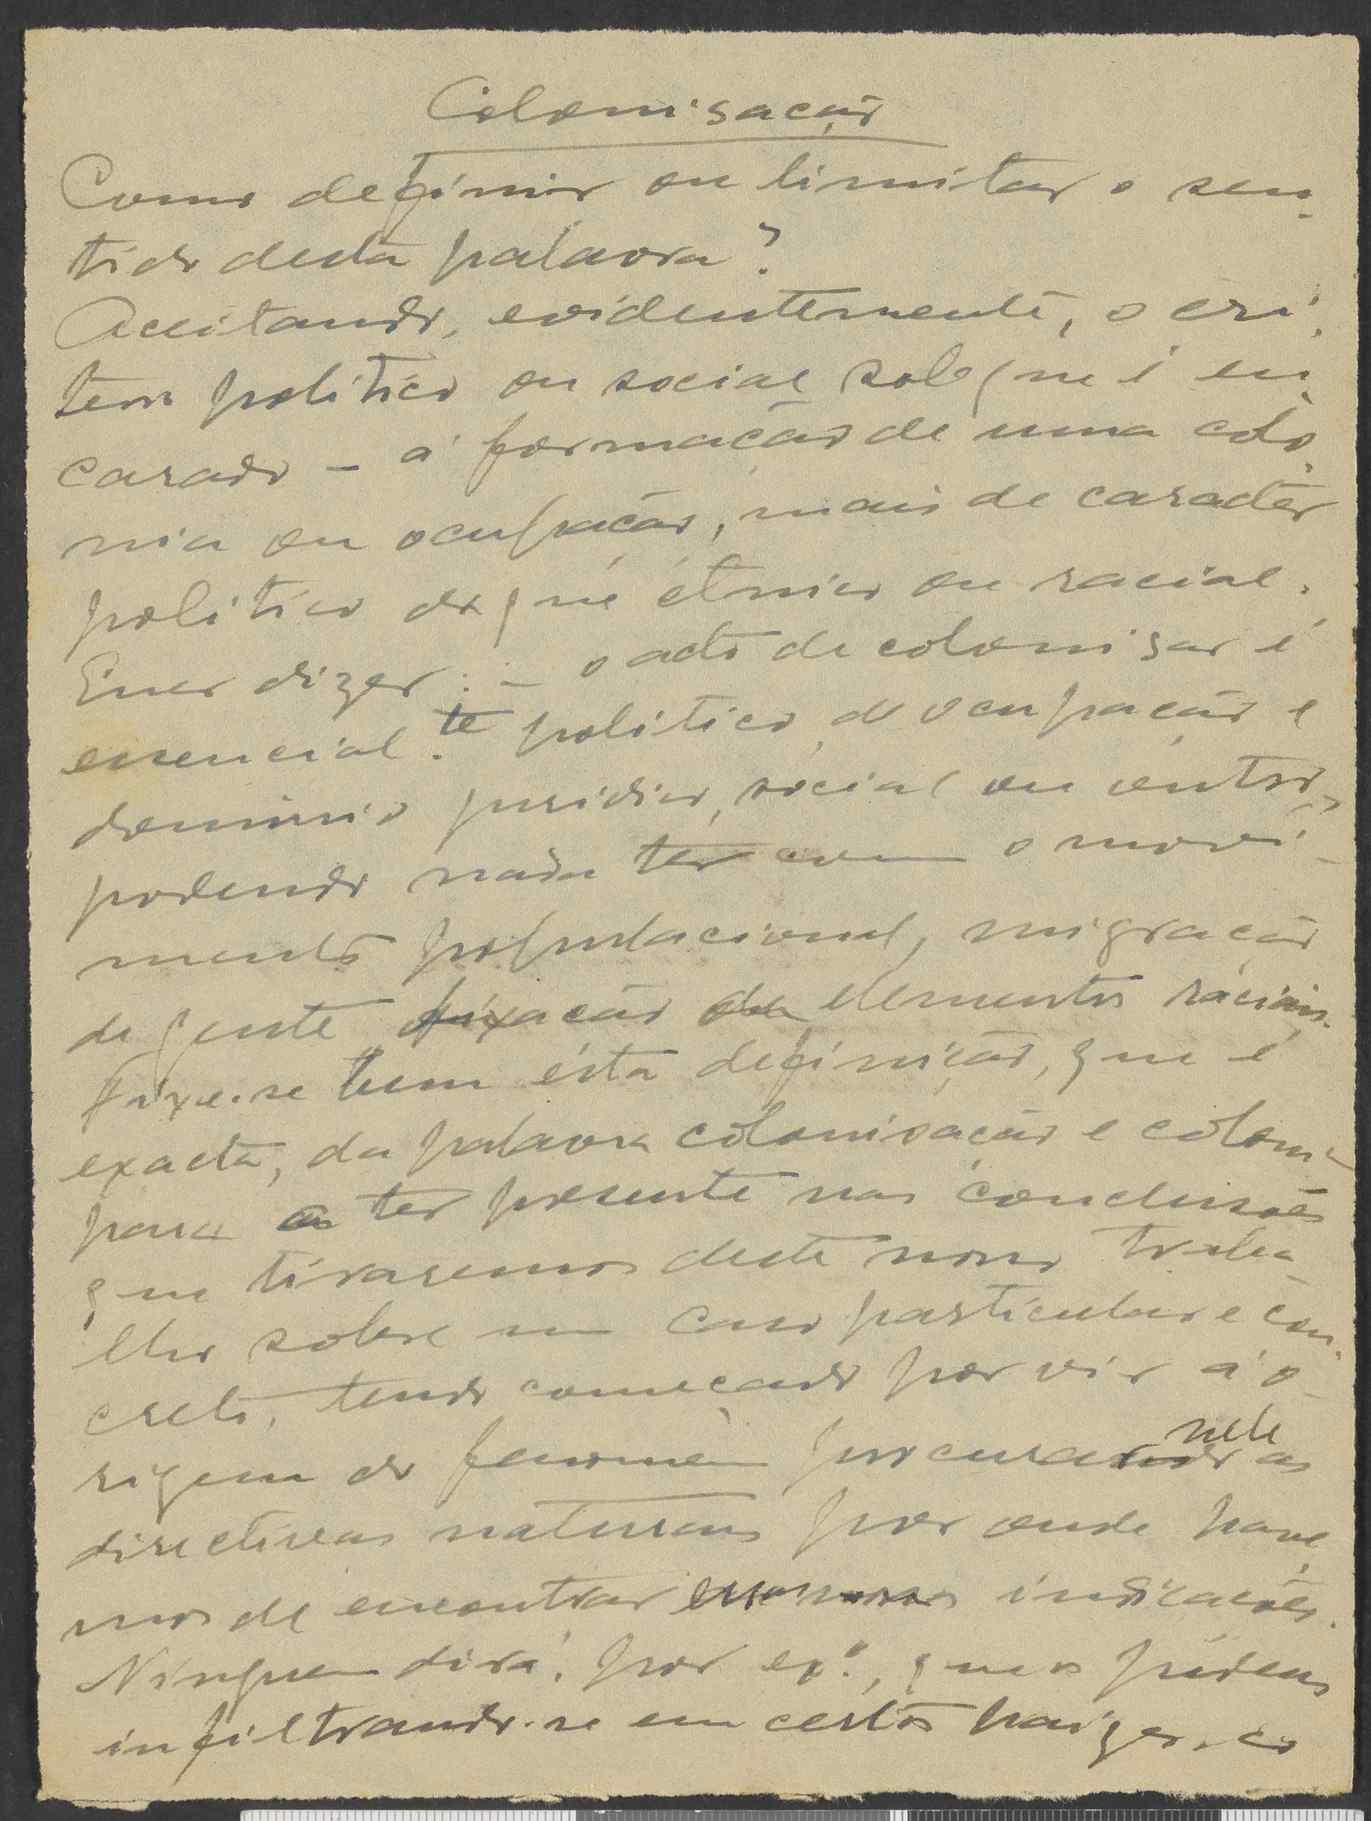 Colonisação
Como definir ou limitar o sen-
tido desta palavra?
Aceitando, evidentemente, o cri-
terio politico ou social sob que é en-
carado – á formação de uma coló-
nia ou ocupação, mais de caracter
politico do que étnico ou racial.
Quer dizer: – o acto de colonisar é
essencial.te politico, de ocupação e
dominio juridico, social ou outro,
podendo nada ter com o movi-
mento populacional, migração
de gente, fixação de elementos raciais.
Fixe-se bem esta definição, que é
exacta, da palavra colonisação e colonia
para a ter presente nas conclusões
que tiraremos deste nosso traba-
lho sobre um caso particular e con-
creto, tendo começado por vir á o-
rigem do fenomeno procurando nele as
directivas naturaes por onde have-
mos de encontrar indicações.
Ninguem dirá, por ex.º, que os judeus
infiltrando-se em certos paizes, os